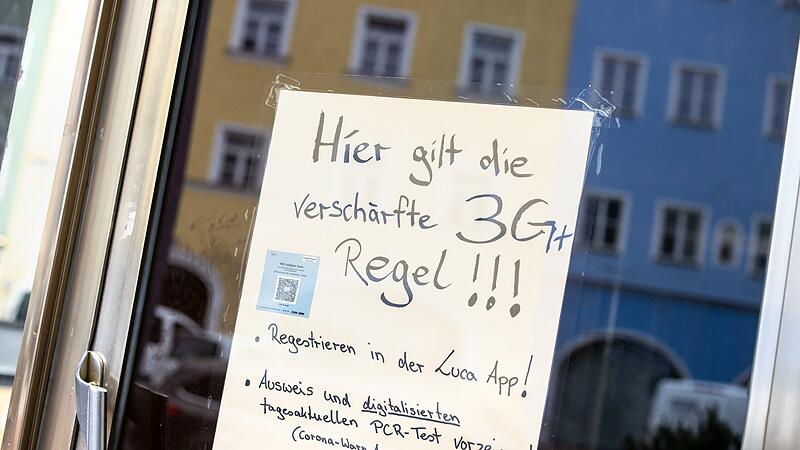 Hier gilt die
verschärfte 3G+
Regel!!!
• Regestrieren in der Luca App!
• Ausweis und digitalisierten
tagesaktuellen PCR-Test
(Corona-Warn